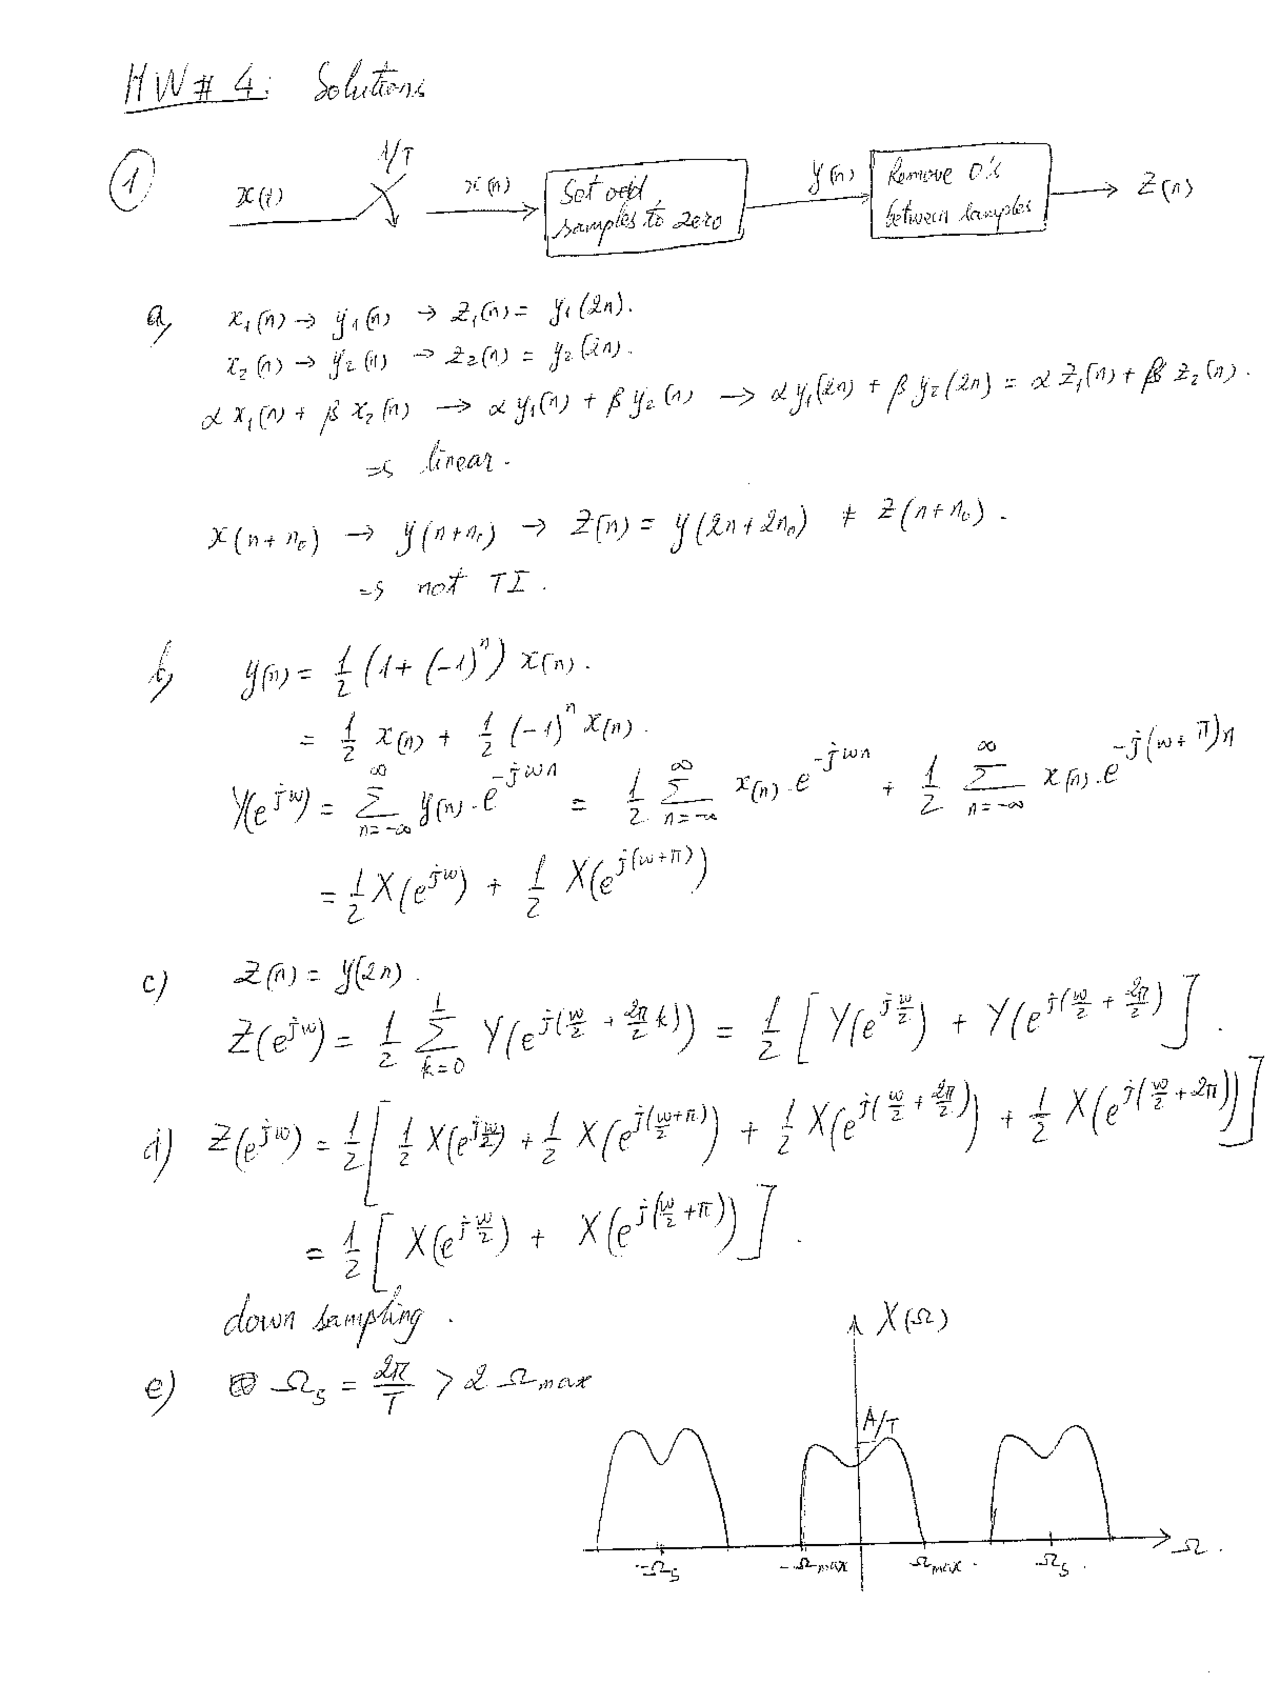 HW# 4: Solutions
1
x(t) 1/T x(n) Set odd samples to zero y(n) Remove 0's between samples z(n)
a) x₁(n) → y₁(n) → z₁(n) = y₁(2n).
x₂(n) → y₂(n) → z₂(n) = y₂(2n).
α x₁(n) + β x₂(n) → α y₁(n) + β y₂(n) → α y₁(2n) + β y₂(2n) = α z₁(n) + β z₂(n).
⇒ linear.
x(n+n₀) → y(n+n₀) → z(n) = y(2n+2n₀) ≠ z(n+n₀).
⇒ not TI.
b) y(n) = 1/2 (1+(-1)^n) x(n).
= 1/2 x(n) + 1/2 (-1)^n x(n).
Y(e^{jω}) = Σ_{n=-∞}^{∞} y(n)·e^{-jωn} = 1/2 Σ_{n=-∞}^{∞} x(n)·e^{-jωn} + 1/2 Σ_{n=-∞}^{∞} x(n)·e^{-j(ω+π)n}
= 1/2 X(e^{jω}) + 1/2 X(e^{j(ω+π)})
c) z(n) = y(2n).
Z(e^{jω}) = 1/2 Σ_{k=0}^{1} Y(e^{j(ω/2 + 2π/2 k)}) = 1/2 [Y(e^{jω/2}) + Y(e^{j(ω/2 + 2π/2)})].
d) Z(e^{jω}) = 1/2 [1/2 X(e^{jω/2}) + 1/2 X(e^{j(ω/2+π)}) + 1/2 X(e^{j(ω/2 + 2π/2)}) + 1/2 X(e^{j(ω/2+2π)})]
= 1/2 [X(e^{jω/2}) + X(e^{j(ω/2+π)})].
down sampling.
e) Ω_s = 2π/T > 2 Ω_max
X(Ω)
A/T
-Ω_s -Ω_max Ω_max Ω_s Ω